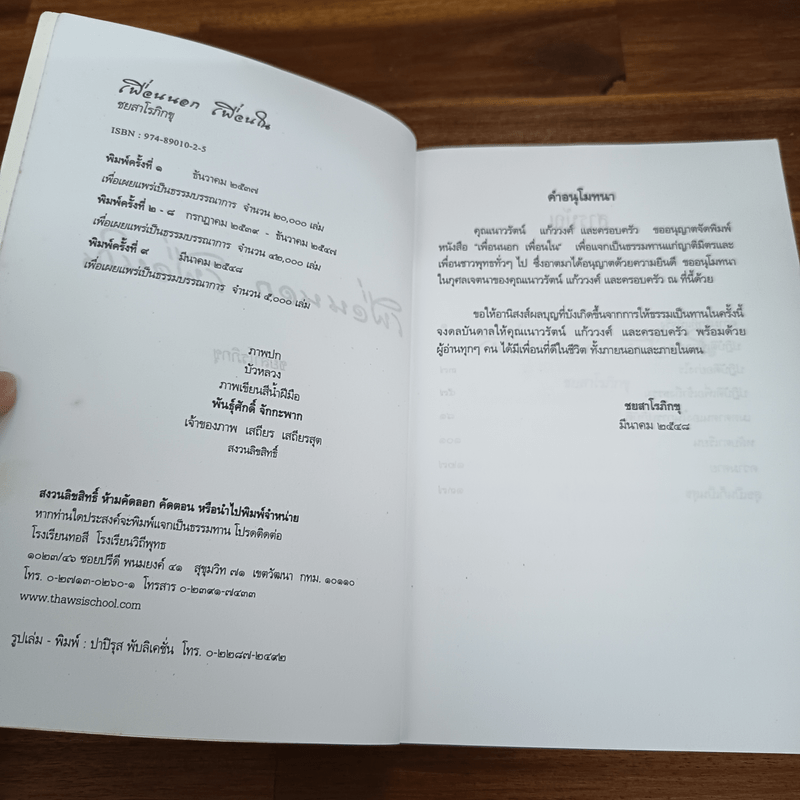 เพื่อนนอก เพื่อนใน
ชยสาโรภิกขุ
ISBN : 974-89010-2-5
พิมพ์ครั้งที่ ๑ ธันวาคม ๒๕๓๗
เพื่อเผยแพร่เป็นธรรมบรรณาการ จำนวน ๒๐,๐๐๐ เล่ม
พิมพ์ครั้งที่ ๒ - ๘ กรกฎาคม ๒๕๓๙ - ธันวาคม ๒๕๔๗
เพื่อเผยแพร่เป็นธรรมบรรณาการ จำนวน ๔๒,๐๐๐ เล่ม
พิมพ์ครั้งที่ ๙ มีนาคม ๒๕๔๘
เพื่อเผยแพร่เป็นธรรมบรรณาการ จำนวน ๕,๐๐๐ เล่ม
ภาพปก
บัวหลวง
ภาพเขียนสีน้ำฝีมือ
พันธุ์ศักดิ์ จักกะพาก
เจ้าของภาพ เสถียร เสถียรสุต
สงวนลิขสิทธิ์
สงวนลิขสิทธิ์ ห้ามคัดลอก คัดตอน หรือนำไปพิมพ์จำหน่าย
หากท่านใดประสงค์จะพิมพ์แจกเป็นธรรมทาน โปรดติดต่อ
โรงเรียนทอสี โรงเรียนวิถีพุทธ
๑๐๒๓/๔๖ ซอยปรีดี พนมยงค์ ๔๑ สุขุมวิท ๗๑ เขตวัฒนา กทม. ๑๐๑๑๐
โทร. ๐-๒๗๑๓-๐๒๖๐-๑ โทรสาร ๐-๒๓๙๑-๗๔๓๓
www.thawsischool.com
รูปเล่ม - พิมพ์ : ปาปิรุส พับลิเคชั่น โทร. ๐-๒๒๘๗-๒๔๙๒
คำอนุโมทนา
คุณเนาวรัตน์ แก้ววงศ์ และครอบครัว ขออนุญาตจัดพิมพ์
หนังสือ "เพื่อนนอก เพื่อนใน" เพื่อแจกเป็นธรรมทานแก่ญาติมิตรและ
เพื่อนชาวพุทธทั่วๆ ไป ซึ่งอาตมาได้อนุญาตด้วยความยินดี ขออนุโมทนา
ในกุศลเจตนาของคุณเนาวรัตน์ แก้ววงศ์ และครอบครัว ณ ที่นี้ด้วย
ขอให้อานิสงส์ผลบุญที่บังเกิดขึ้นจากการให้ธรรมเป็นทานในครั้งนี้
จงดลบันดาลให้คุณเนาวรัตน์ แก้ววงศ์ และครอบครัว พร้อมด้วย
ผู้อ่านทุกๆ คน ได้มีเพื่อนที่ดีในชีวิต ทั้งภายนอกและภายในตน
ชยสาโรภิกขุ
มีนาคม ๒๕๔๘